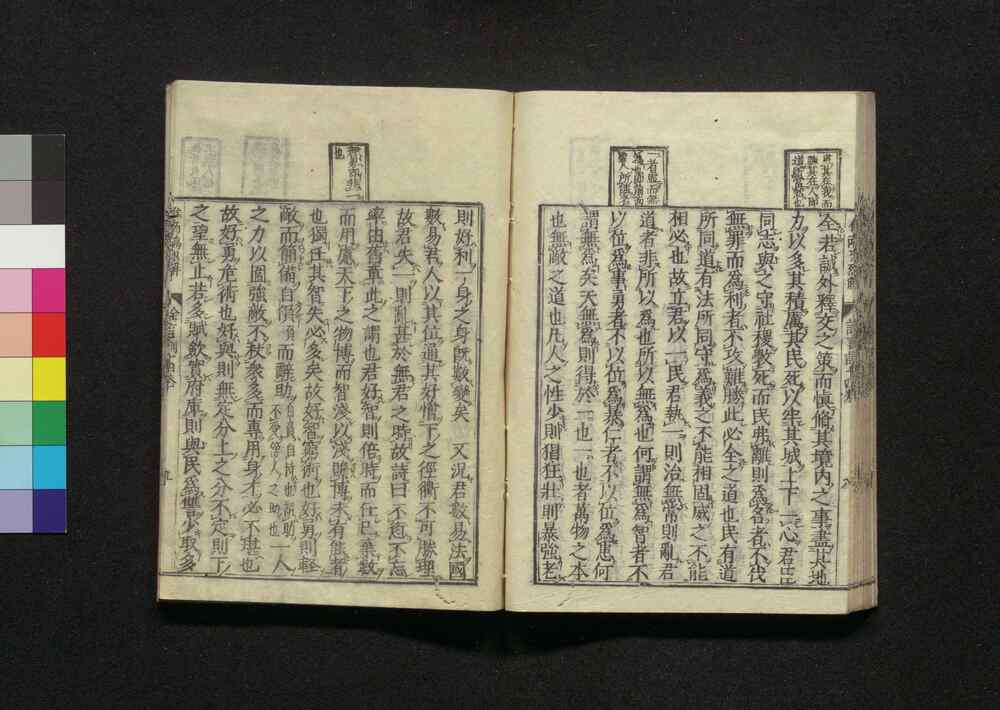 全若誠外釋交之策而愼脩其境內之事盡其地
力以多其積厲其民死以牢其城上下一心君臣
同志與之守社稷斅死而民弗離則爲名者不伐
無罪而爲利者不攻難勝此必全之道也民有道
所同道有法所同守爲義之不能相固威之不能
相必也故立君以一民君執一則治無常則亂君
道者非所以爲也所以無爲也何謂無爲智者不
以位爲事勇者不以位爲暴仁者不以位爲惠何
謂無爲矣夫無爲則得於一也一也者萬物之本
也無敵之道也凡人之性少則猖狂壯則暴強老
則好利一身之身旣數變矣 又況君數易法國
數易君人以其位道其好憎下之徑衢不可勝理
故君失一則亂甚於無君之時故詩曰不愆不忘
率由舊章此之謂也君好智則倍時而任己棄數
而用慮天下之物博而智淺以淺贍博未有能者
也獨任其智失必多矣故好智窮術也好勇則輕
敵而簡備自偩 而辭助 一人
之力以圄強敵不杖衆多而專用身才必不堪也
故好勇危術也好與則無定分上之分不定則下
之望無止若多賦斂實府庫則與民爲讐少取多